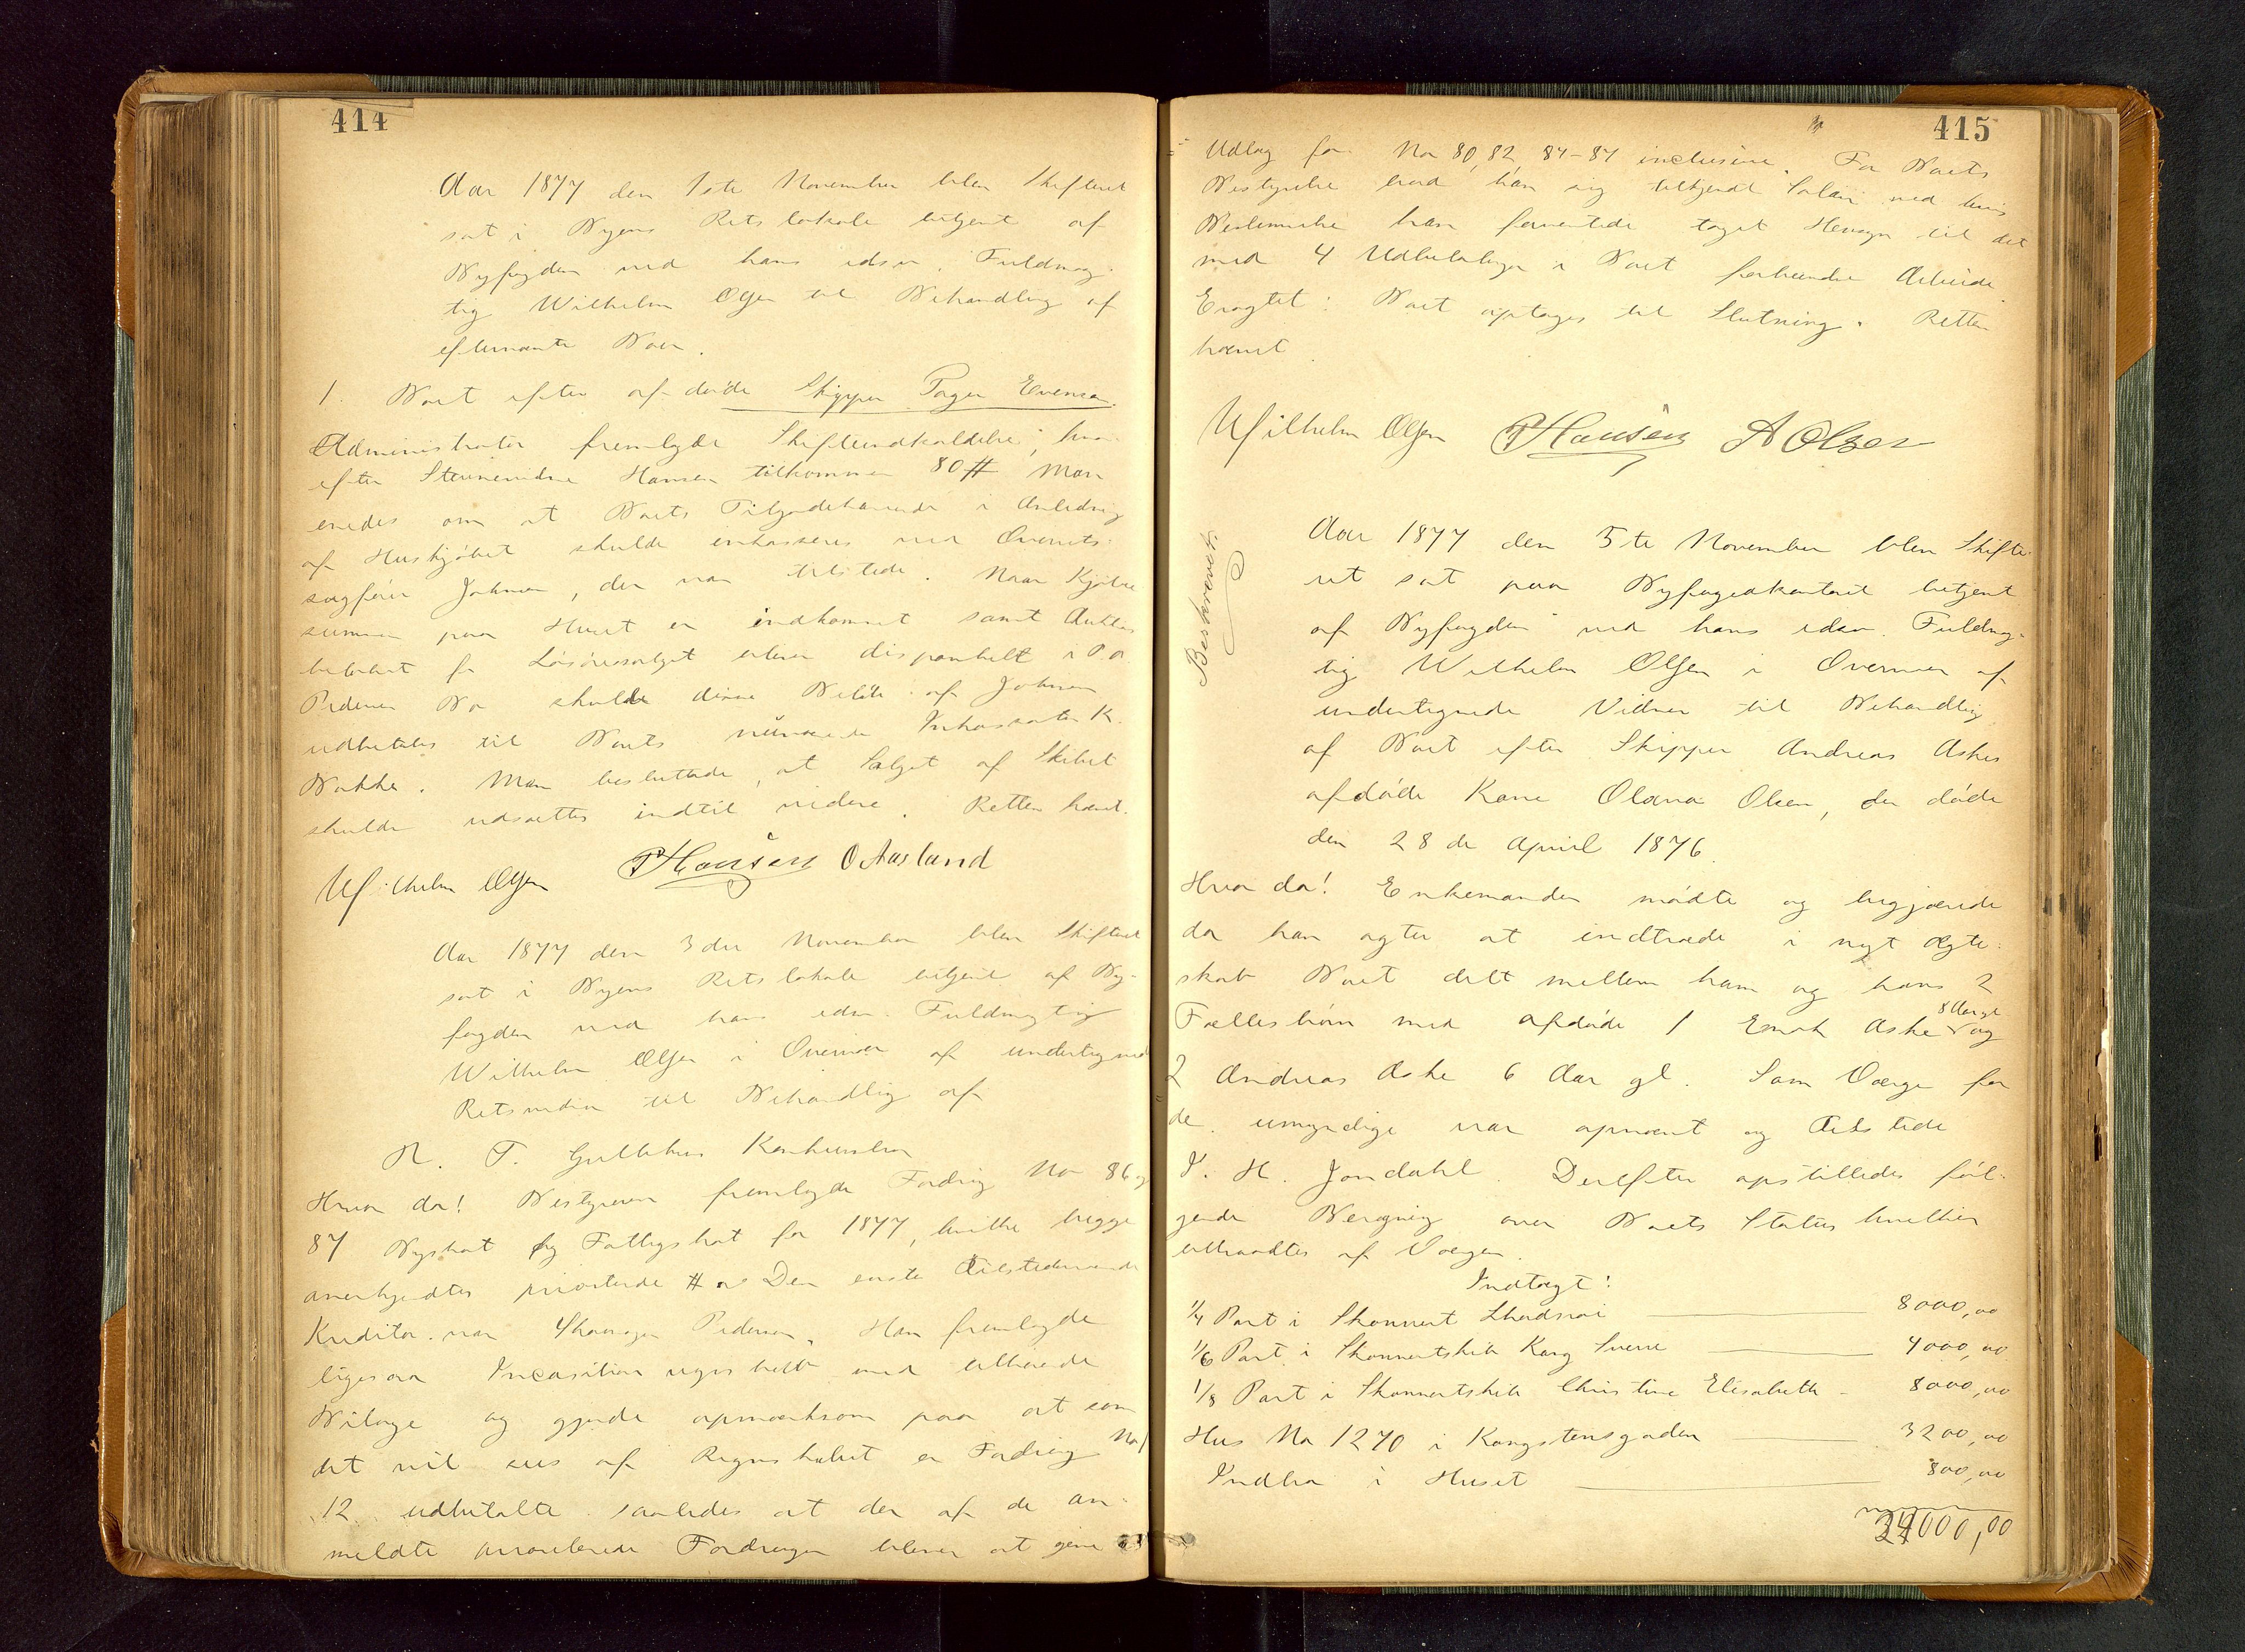 414
Aar 1877 den 1ste November blev Skifteret
sat i Byens Retslokale betjent af
Byfogden ved hans edsv. Fuldmæg-
tig Wilhelm Olsen til Behandling af
efternævnte Boer.
1. Boet efter afdøde Skipper Tager Evensen.
Administrator fremlagde Skifteindkaldelse, hvor-
efter Stevnevidne Hansen tilkommer 80 # Man
enedes om at Boets Tilgodehavende i Anledning
af Huskjøbet skulde inkasseres ved Overrets-
sagfører Johnsen, der var tilstede. Naar Kjøbe
summen paa Huset er indkommet samt Auktions
beløbet for Løsøresalget bliver disponibelt i P. A.
Pedersen Bo skulde disse Beløb af Johnsen
udbetales til Boets nuværende Inkassator K.
Bakke. Man besluttede, at Salget af Skibet
skulde udsættes indtil videre. Retten hævet.
Wilhelm Olsen PHansen O Aasland
Aar 1877 den 3die November blev Skifteret
sat i Byens Retslokale betjent af By-
fogden ved hans edsv. Fuldmægtig
Wilhelm Olsen i Overvær af undertegnede
Retsvidner til Behandling af
N. T. Gullehus Konkursbo
Hvor da! Bestyreren fremlagde Fordring No 86 og
87 Byskat og Fattigskat for 1877, hvilke begge
anerkjendtes prioriterede # Den eneste tilstedeværende
Kreditor var Pedersen. Han fremlagde
ligesaa med tilhørende
Bilage og gjorde opmærksom paa at som
det vil sees af Regnskabet er Fordring No 1
12 udbetalte saaledes at der af de an-
meldte prioriterede Fordringer bliver at gjøre
415
Udlæg for No 80, 82, 84-87 inclusive. For Boets
Bestyrelse bad han sig tilkjendt Salær ved hvis
Bestemmelse han forventede taget Hensyn til det
med 4 Udbetalinger i Boet forbundne Arbeide.
Eragtet: Boet optages til Slutning. Retten
hævet.
Wilhelm Olsen PHansen A Olsen
Beskrevet.
Aar 1877 den 5te November blev Skifte-
ret sat paa Byfogedkontoret betjent
af Byfogden ved hans edsv. Fuldmæg-
tig Wilhelm Olsen i Overvær af
undertegnede Vidner til Behandling
af Boet efter Skipper Andreas Askes
afdøde Kone Olava Olsen, der døde
den 28de April 1876.
Hvor da! Enkemanden mødte og begjærede
da han agter at indtræde i nyt Ægte-
skab Boet delt mellem ham og hans 2
Fællesbørn med afdøde 1 Enok Aske 8 Aar gl og
2 Andreas Aske 6 Aar gl. Som Værge for
de umyndige var opnævnt og tilstede
J. H. Jondahl. Derefter opstilledes føl-
gende Beregning over Boets Status hvilken
tiltraadtes af Værgen.
Indtægt:
1/4 Part i Skonnert 8000,00
1/6 Part i Skonnertskib Kong Sverre 4000,00
1/8 Part i Skonnertskib Christine Elisabeth 8000,00
Hus No 1270 i Kongstensgaden 3200,00
Indbo i Huset 800,00
24000,00